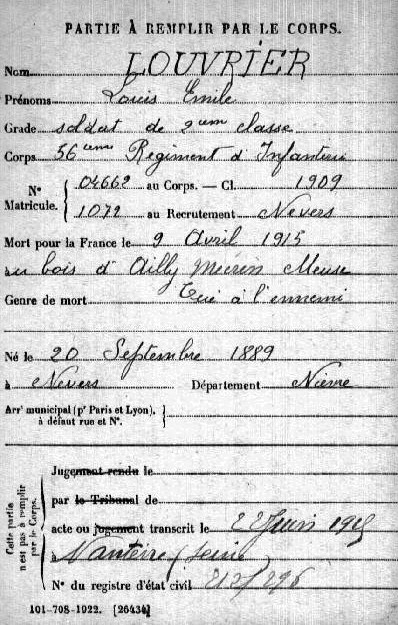 PARTIE À REMPLIR PAR LE CORPS.
Nom LOUVRIER
Prénoms Louis Emile
Grade soldat de 2eme classe
Corps 56eme Régiment d'Infanterie
N° Matricule. { 04662 au Corps. — Cl. 1909
1072 au Recrutement Nevers
Mort pour la France le 9 Avril 1915
au bois d'Ailly Mécrin Meuse
Genre de mort Tué à l'ennemi
Né le 20 Septembre 1889
à Nevers Département Nièvre
Arrt municipal (pr Paris et Lyon), à défaut rue et N°. {
Cette partie n'est pas à remplir par le Corps. {
Jugement rendu le
par le Tribunal de
acte ou jugement transcrit le 22 Juin 1915
à Nanterre (Seine
N° du registre d'état civil 212/296
101-708-1922. [26434]